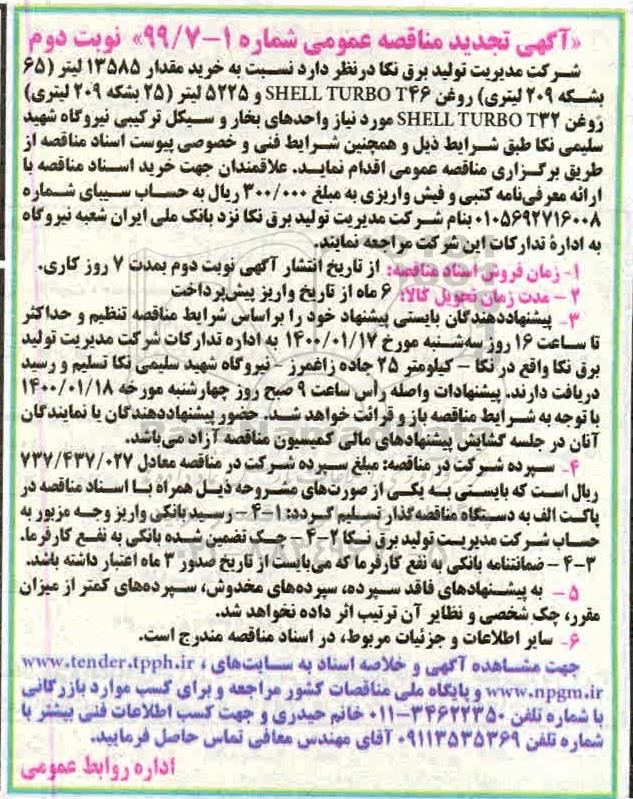 «آگهی تجدید مناقصه عمومی شماره ۱-۹۹/۷» نوبت دوم
شرکت مدیریت تولید برق نکا درنظر دارد نسبت به خرید مقدار ۱۳۵۸۵ لیتر (۶۵
بشکه ۲۰۹ لیتری) روغن SHELL TURBO T۴۶ و ۵۲۲۵ لیتر (۲۵ بشکه ۲۰۹ لیتری)
روغن SHELL TURBO T۳۲ مورد نیاز واحدهای بخار و سیکل ترکیبی نیروگاه شهید
سلیمی نکا طبق شرایط ذیل و همچنین شرایط فنی و خصوصی پیوست اسناد مناقصه از
طریق برگزاری مناقصه عمومی اقدام نماید. علاقمندان جهت خرید اسناد مناقصه با
ارائه معرفی‌نامه کتبی و فیش واریزی به مبلغ ۳۰۰/۰۰۰ ریال به حساب سیبای شماره
۰۱۰۵۶۹۲۷۱۶۰۰۸ بنام شرکت مدیریت تولید برق نکا نزد بانک ملی ایران شعبه نیروگاه
به ادارهٔ تدارکات این شرکت مراجعه نمایند.
۱- زمان فروش اسناد مناقصه: از تاریخ انتشار آگهی نوبت دوم بمدت ۷ روز کاری.
۲- مدت زمان تحویل کالا: ۶ ماه از تاریخ واریز پیش‌پرداخت
۳- پیشنهاددهندگان بایستی پیشنهاد خود را براساس شرایط مناقصه تنظیم و حداکثر
تا ساعت ۱۶ روز سه‌شنبه مورخ ۱۴۰۰/۰۱/۱۷ به اداره تدارکات شرکت مدیریت تولید
برق نکا واقع در نکا - کیلومتر ۲۵ جاده زاغمرز - نیروگاه شهید سلیمی نکا تسلیم و رسید
دریافت دارند. پیشنهادات واصله رأس ساعت ۹ صبح روز چهارشنبه مورخه ۱۴۰۰/۰۱/۱۸
با توجه به شرایط مناقصه باز و قرائت خواهد شد. حضور پیشنهاددهندگان یا نمایندگان
آنان در جلسه گشایش پیشنهادهای مالی کمیسیون مناقصه آزاد می‌باشد.
۴- سپرده شرکت در مناقصه: مبلغ سپرده شرکت در مناقصه معادل ۷۳۷/۴۳۷/۰۲۷
ریال است که بایستی به یکی از صورت‌های مشروحه ذیل همراه با اسناد مناقصه در
پاکت الف به دستگاه مناقصه‌گذار تسلیم گردد: ۱-۴- رسید بانکی واریز وجه مزبور به
حساب شرکت مدیریت تولید برق نکا ۲-۴- چک تضمین شده بانکی به نفع کارفرما.
۳-۴- ضمانتنامه بانکی به نفع کارفرما که می‌بایست از تاریخ صدور ۳ ماه اعتبار داشته باشد.
۵- به پیشنهادهای فاقد سپرده، سپرده‌های مخدوش، سپرده‌های کمتر از میزان
مقرر، چک شخصی و نظایر آن ترتیب اثر داده نخواهد شد.
۶- سایر اطلاعات و جزئیات مربوط، در اسناد مناقصه مندرج است.
جهت مشاهده آگهی و خلاصه اسناد به سایت‌های www.tender.tpph.ir ،
www.npgm.ir و پایگاه ملی مناقصات کشور مراجعه و برای کسب موارد بازرگانی
با شماره تلفن ۳۴۶۲۲۳۵۰-۰۱۱ خانم حیدری و جهت کسب اطلاعات فنی بیشتر با
شماره تلفن ۰۹۱۱۳۵۳۵۳۶۹ آقای مهندس معافی تماس حاصل فرمایید.
اداره روابط عمومی